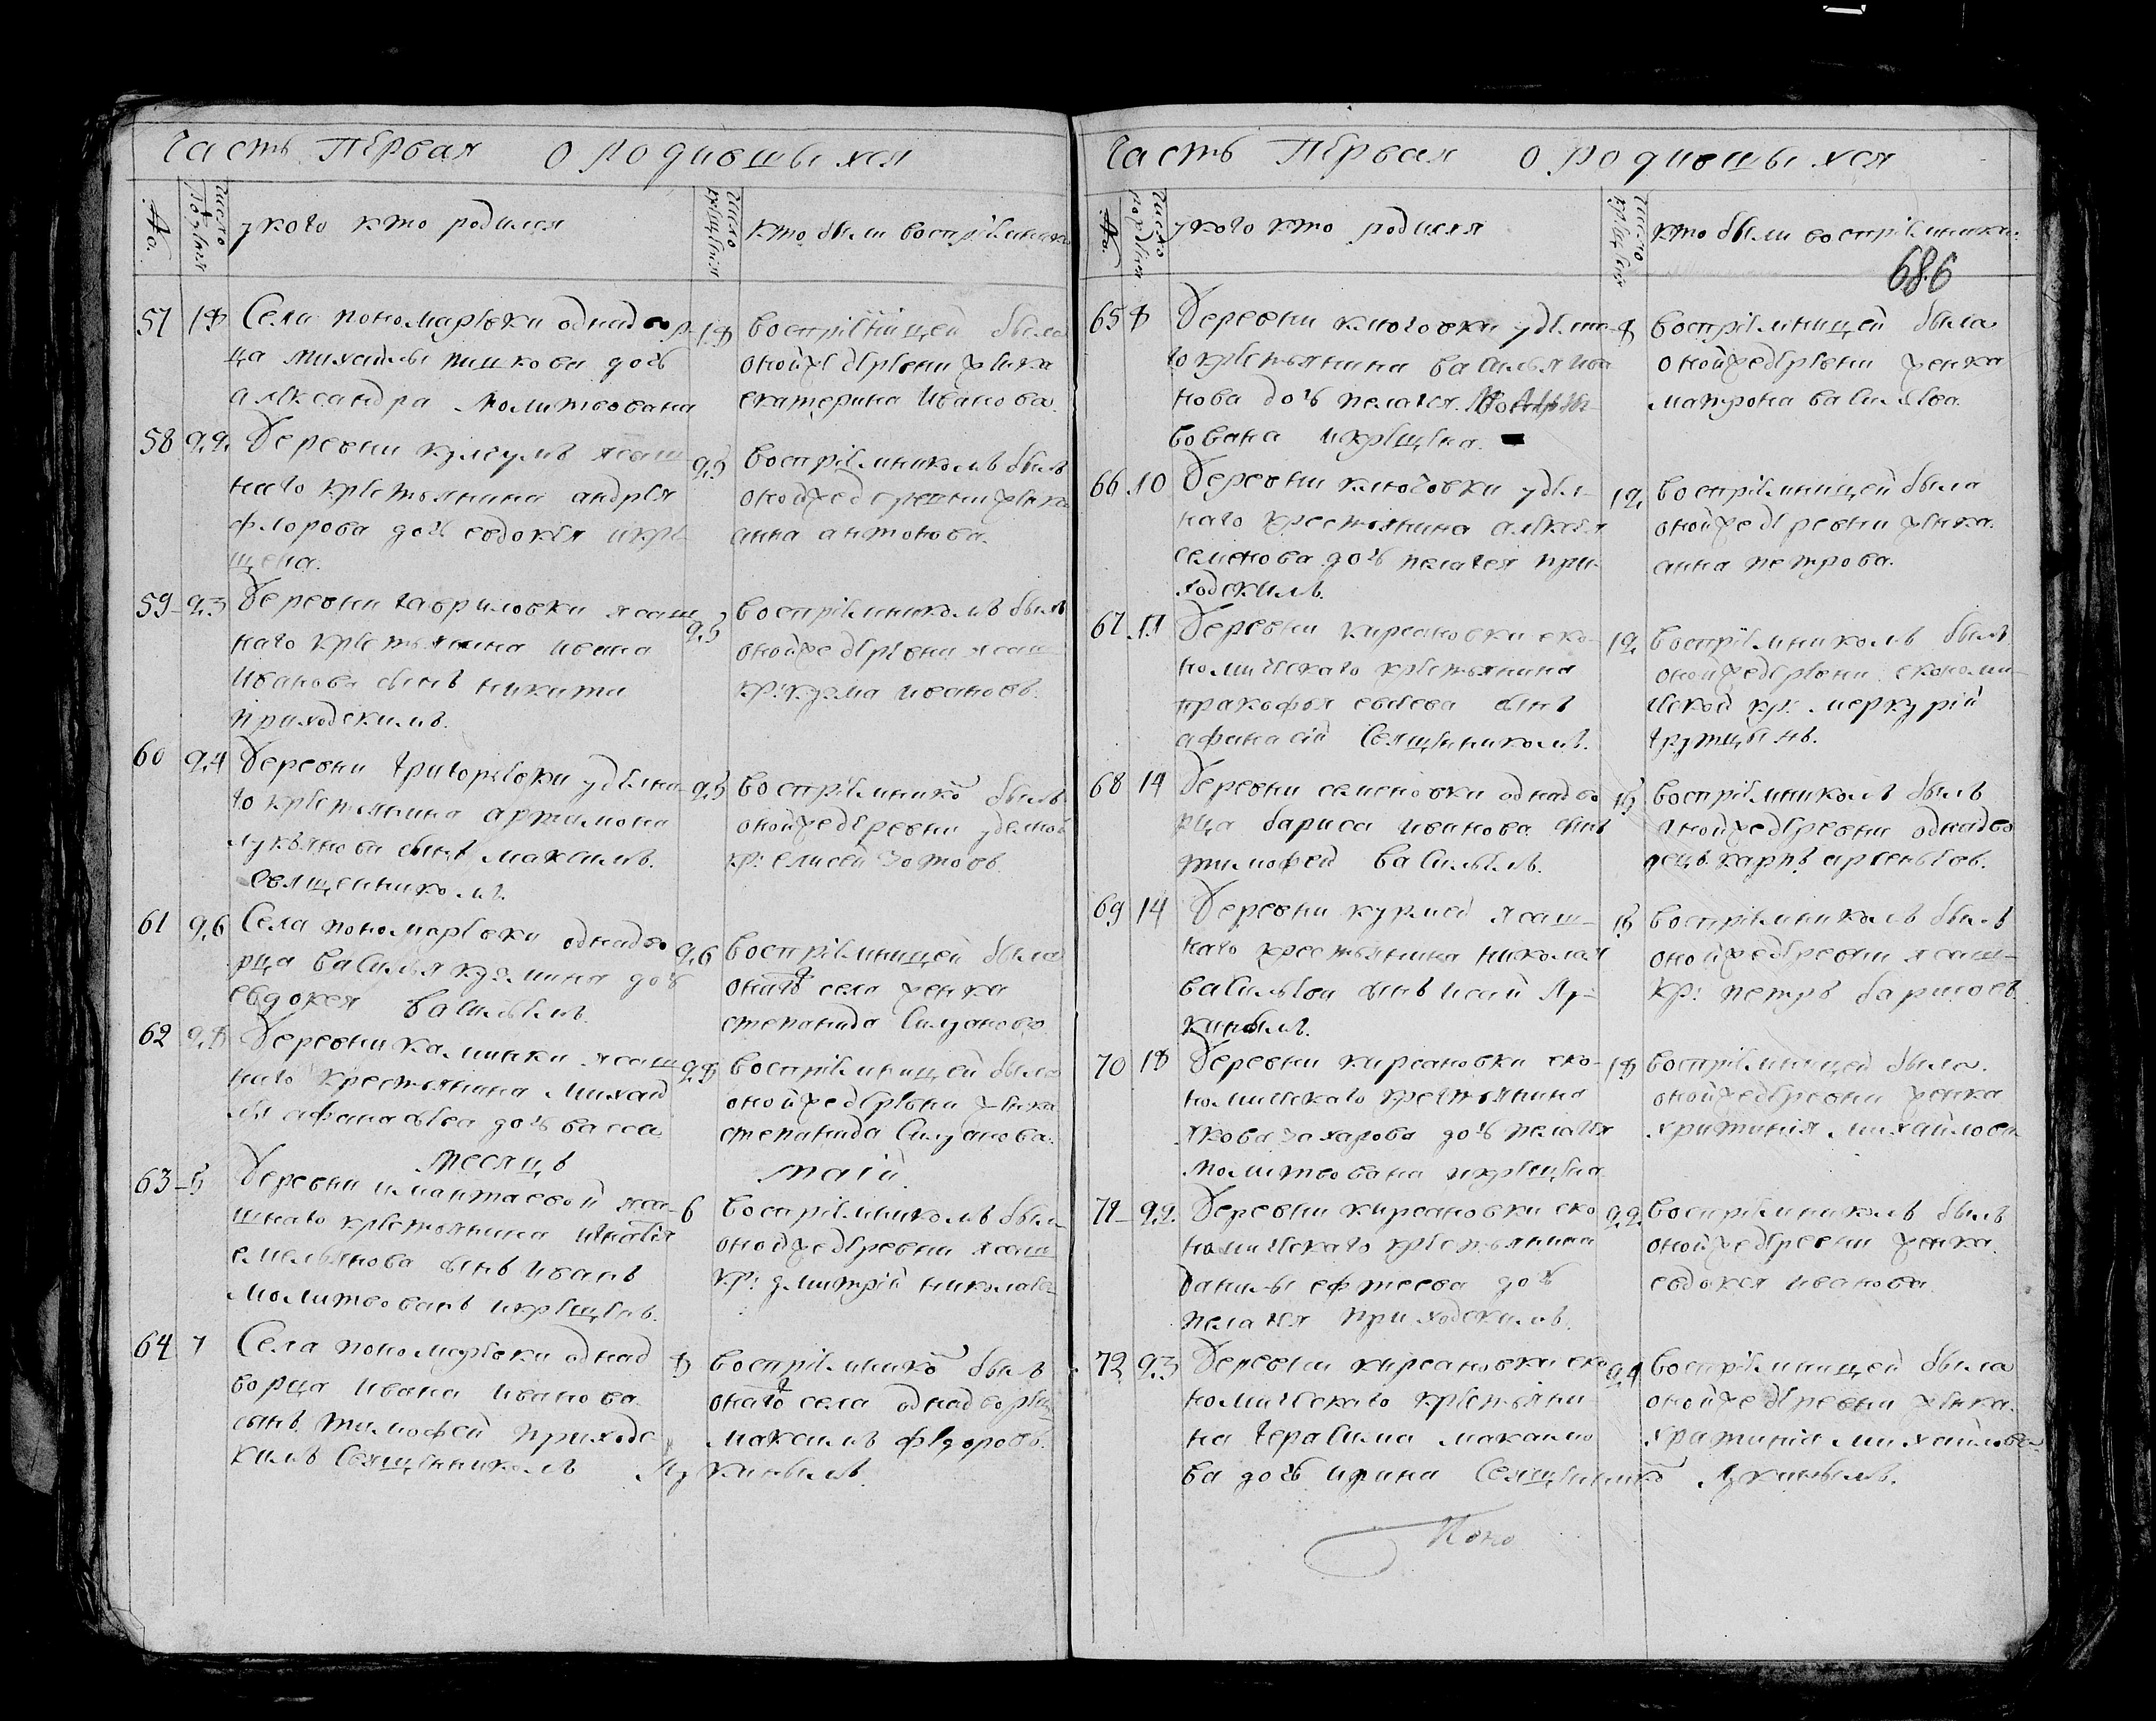 Часть Первая о родившыхся
№
число рождения
у кого кто родился
число крещения
кто были воспрiемники
57 18 Села пономарiовки однадвор
ца михайлы тишкова дочь
александра молитвована
18 воспрiемницей была
оной же деревни женка
екатерина Иванова
58 22 Деревни ясаш
наго крестьянина андрея
флорова дочь евдокея икре
щена.
25 воспрiемникомъ былъ
оной же деревни женка
анна антонова.
59 23 Деревни гавриловки ясаш
наго крестьянина ивана
Иванова сынъ никита
приходскимъ.
25 воспрiемникомъ былъ
оной же деревни ясаш
кр: кузма ивановъ.
60 24 Деревни григорьевки удельна
го крестьянина артамона
лукьянова сынъ максимъ.
священникомъ.
25 воспрiемнико былъ
оной же деревни уделной
кр: елисей зотовъ
61 26 Села пономарiовки однадво
рца василья кузмина дочь
евдокея васильемъ
26 воспрiемницей была
онаго села женка
степанида Силуанова
62 28 Деревни калинки ясаш
наго крестьянина михай
лы афанасьева дочь васса
28 воспрiемницей была
оной же деревни женка
степанида Силуанова.
месяцъ маiй
63 5 Деревни имангаевой яса
шнаго крестьянина игнатiя
емельянова сынъ иванъ
молитвованъ икрещенъ.
6 воспрiемникомъ былъ
оной же деревни ясаш
кр: дмитрiй николаев
64 7 Села пономарiовки однад
ворца ивана иванова
сынъ тимофей приходс
кимъ священникомъ Лукиныымъ.
8 воспрiемнико былъ
онаго села однадворец
максимъ федоровъ.
Часть Первая о родившыхся
№
число рождения
у кого кто родился
число крещения
кто были воспрiемники
686
65 8 Деревни ключовки уделна
го крестьянина василья ива
нова дочь пелагея.
вована икрещена.
8 воспрiемницей была
оной же деревни женка
матрона васильева.
66 10 Деревни ключовки удел
наго крестьянина алексея
семенова дочь пелагея при
ходскимъ.
12 воспрiемницей была
оной же деревни женка.
анна петрова.
67 11 Деревни кирсановки еко
номическаго крестьянина
пракофья сынъ
афанасiй Священникомъ.
12 воспрiемникомъ былъ
оной же деревни економи
ческой кр: меркурiй
68 14 Деревни семеновки однадво
рца бариса иванова сынъ
тимофей васильемъ.
15 воспрiемникомъ былъ
оной же деревни однадво
рецъ карпъ арсеньевъ.
69 14 Деревни курмей ясаш
наго крестьянина николая
васильева сынъ исай Лу
кинымъ.
15 воспрiемникомъ былъ
оной же деревни ясаш
кр: петръ барисовъ
70 18 Деревни кирсановки эко
номическаго крестьянина
якова захарова дочь пелагея
молитвована икрещена
18 воспрiемницей была.
оной же деревни женка
хритинiя михайлова
71 22 Деревни кирсановки еко
номическаго крестьянина
данилы ефтеева дочь
пелагея приходскимъ.
22 воспрiемникомъ былъ
оной же деревни женка
евдокея иванова
72 23 Деревни кирсановки эко
номическаго крестьяни
на герасима макаимо
ва дочь ирина Священнико Лукинымъ.
24 воспрiемницей была
оной же деревни женка.
хратинiа михайлова
Поно